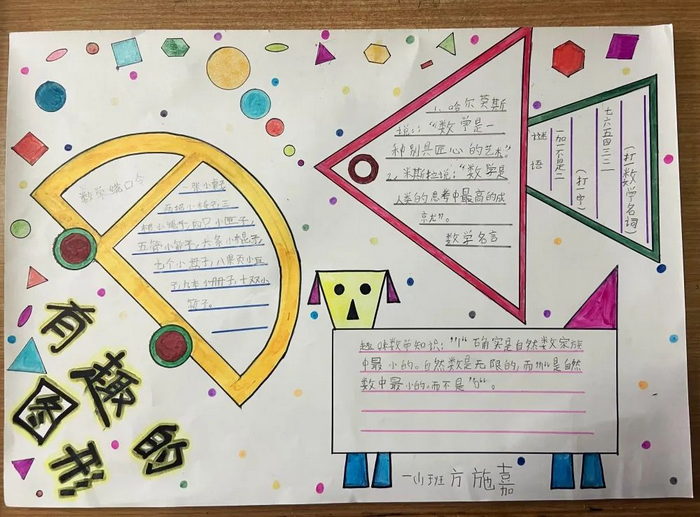 有趣的
图形
数学绕口令
一张小桌子
五管小笔子,六条小棍子,
七个小盘子,八条页小豆
子,九本小册子,十双小
筷子。
1、哈尔莫斯
说:“数学是一
种别具匠心的艺术”
2、米斯拉说:“数学是
人类的思考中最高的成
就”。
数学名言
谜语
一加一不是二
(打一字)
七六五四三二一
(打数学名词)
趣味数学知识:“1”确实是自然数家族
中最小的。自然数是无限的,而“1”是自然
数中最小的,而不是“0”。
一小班 方施嘉